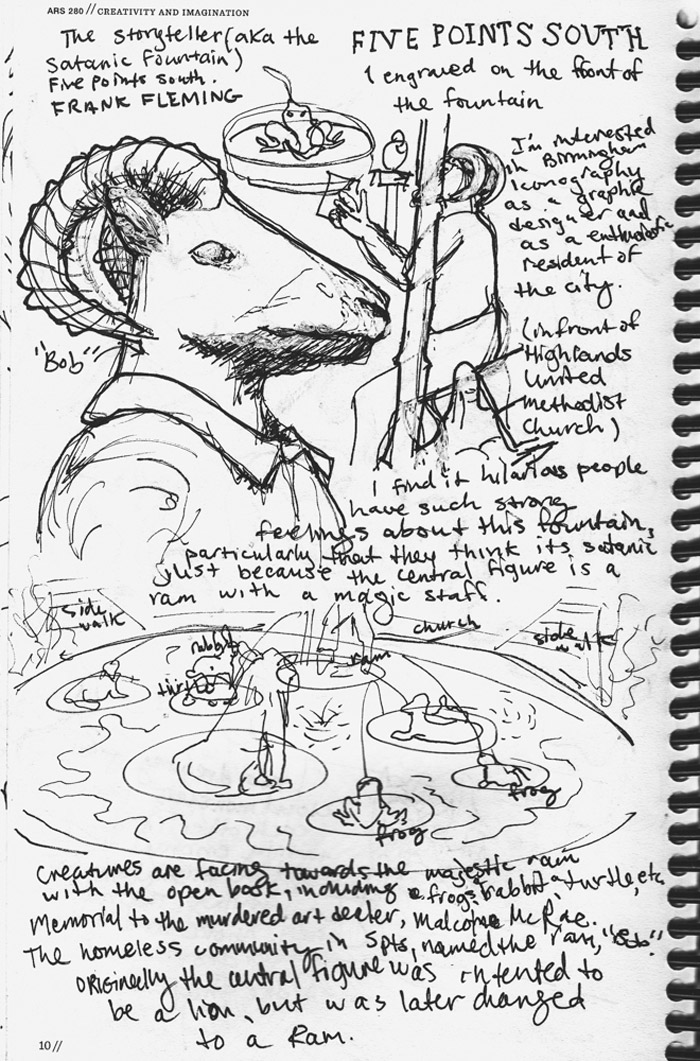 ARS 280 // CREATIVITY AND IMAGINATION
The storyteller (aka the
Satanic Fountain)
Five points South.
FRANK FLEMING
FIVE POINTS SOUTH
engraved on the front of
the fountain
I'm interested
in Birmingham
Iconography
as a graphic
designer and
as a enthusiastic
resident of
the city.
(in front of
Highlands
United
Methodist
Church)
"Bob"
I find it hilarious people
have such strong
feelings about this fountain,
particularly that they think its satanic
just because the central figure is a
ram with a magic staff.
side
walk
church
side
walk
rabbit
ram
turtle
frog
frog
Creatures are facing towards the majestic ram
with the open book, including a frogs, rabbit, a turtle, etc.
Memorial to the murdered art dealer, Malcolm McRae.
The homeless community in 5pts, named the ram, "Bob."
originally the central figure was intented to
be a lion, but was later changed
to a Ram.
10 //